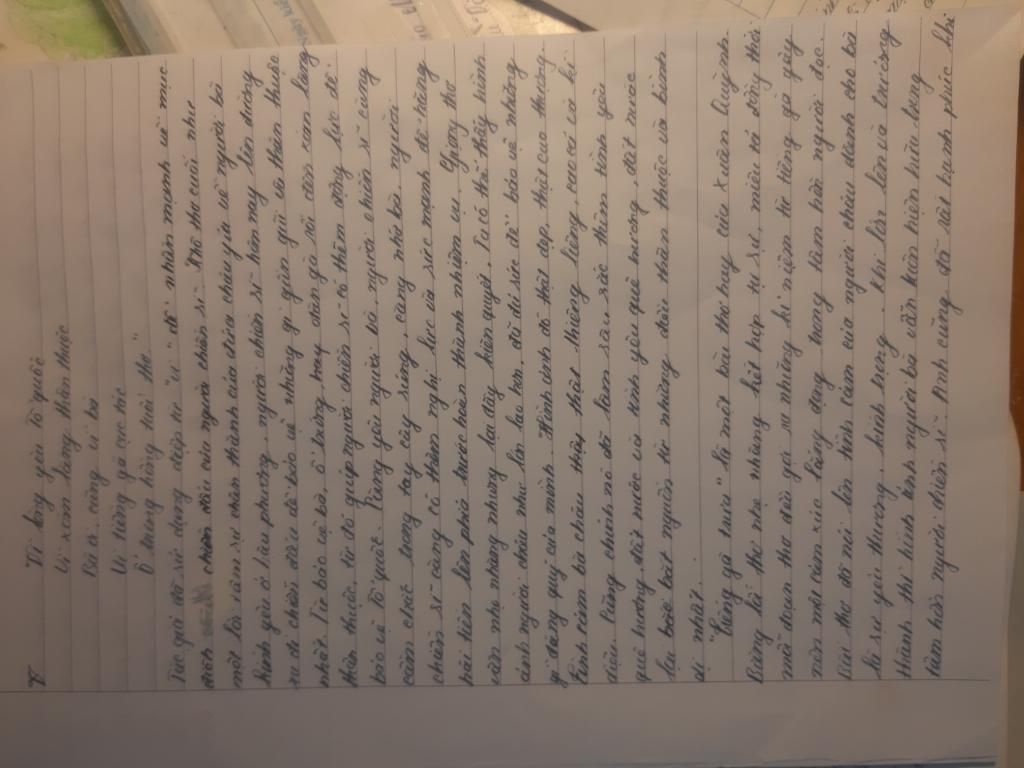 Vì lòng yêu Tổ quốc
Vì xóm làng thân thuộc
Bà ơi, cũng vì bà
Vì tiếng gà cục tác
Ổ trứng hồng tuổi thơ"
Tác giả đã sử dụng điệp từ "vì" để nhấn mạnh về mục
đích chiến đấu của người chiến sĩ. Khổ thơ cuối như
một lời tâm sự chân thành của đứa cháu gửi về người bà
kính yêu ở hậu phương, người chiến sĩ hôm nay lên đường
ra đi chiến đấu để bảo vệ những gì gần gũi và thân thuộc
nhất. Từ bóc về bà, ổ trứng, hay đàn gà rồi đến xóm làng
thân thuộc, từ đó đã giúp người chiến sĩ có thêm động lực để
bảo vệ Tổ quốc. Càng yêu người bà, người chiến sĩ càng
cầm chắc trong tay cây súng, càng nhớ bà, người
chiến sĩ càng có thêm nghị lực và sức mạnh để vững
bài tiến lên phía trước hoàn thành nhiệm vụ. Giọng thơ
vẫn nhẹ nhàng nhưng lại đầy kiên quyết, ta có thể thấy hình
ảnh người cháu như lớn lao hơn, đã đủ sức để bảo vệ những
gì đáng quý của mình. Hình ảnh đó thật đẹp, thật cao thượng
Tình cảm bà cháu thật thiêng liêng, cao cả và kì
diệu. Cũng chính nó đã làm sâu sắc thêm tình yêu
quê hương đất nước và tình yêu quê hương, đất nước
lại bắt nguồn từ những điều thân thuộc và bình
dị nhất.
"Tiếng gà trưa" là một bài thơ hay của Xuân Quỳnh.
Bằng lời thơ nhẹ nhàng, kết hợp tự sự, miêu tả đầy
mỗi đoạn thơ đều gợi ra những kỉ niệm từ tiếng gà gáy
nên một cảm xúc lắng đọng trong tâm hồn người đọc.
Bài thơ đã nói lên tình cảm của người cháu dành cho bà
là sự yêu thương, kính trọng. Khi lớn lên và trưởng
thành thì hình ảnh người bà vẫn luôn hiện hữu trong
tâm hồn người chiến sĩ. Tình cũng đã rất hạnh phúc khi